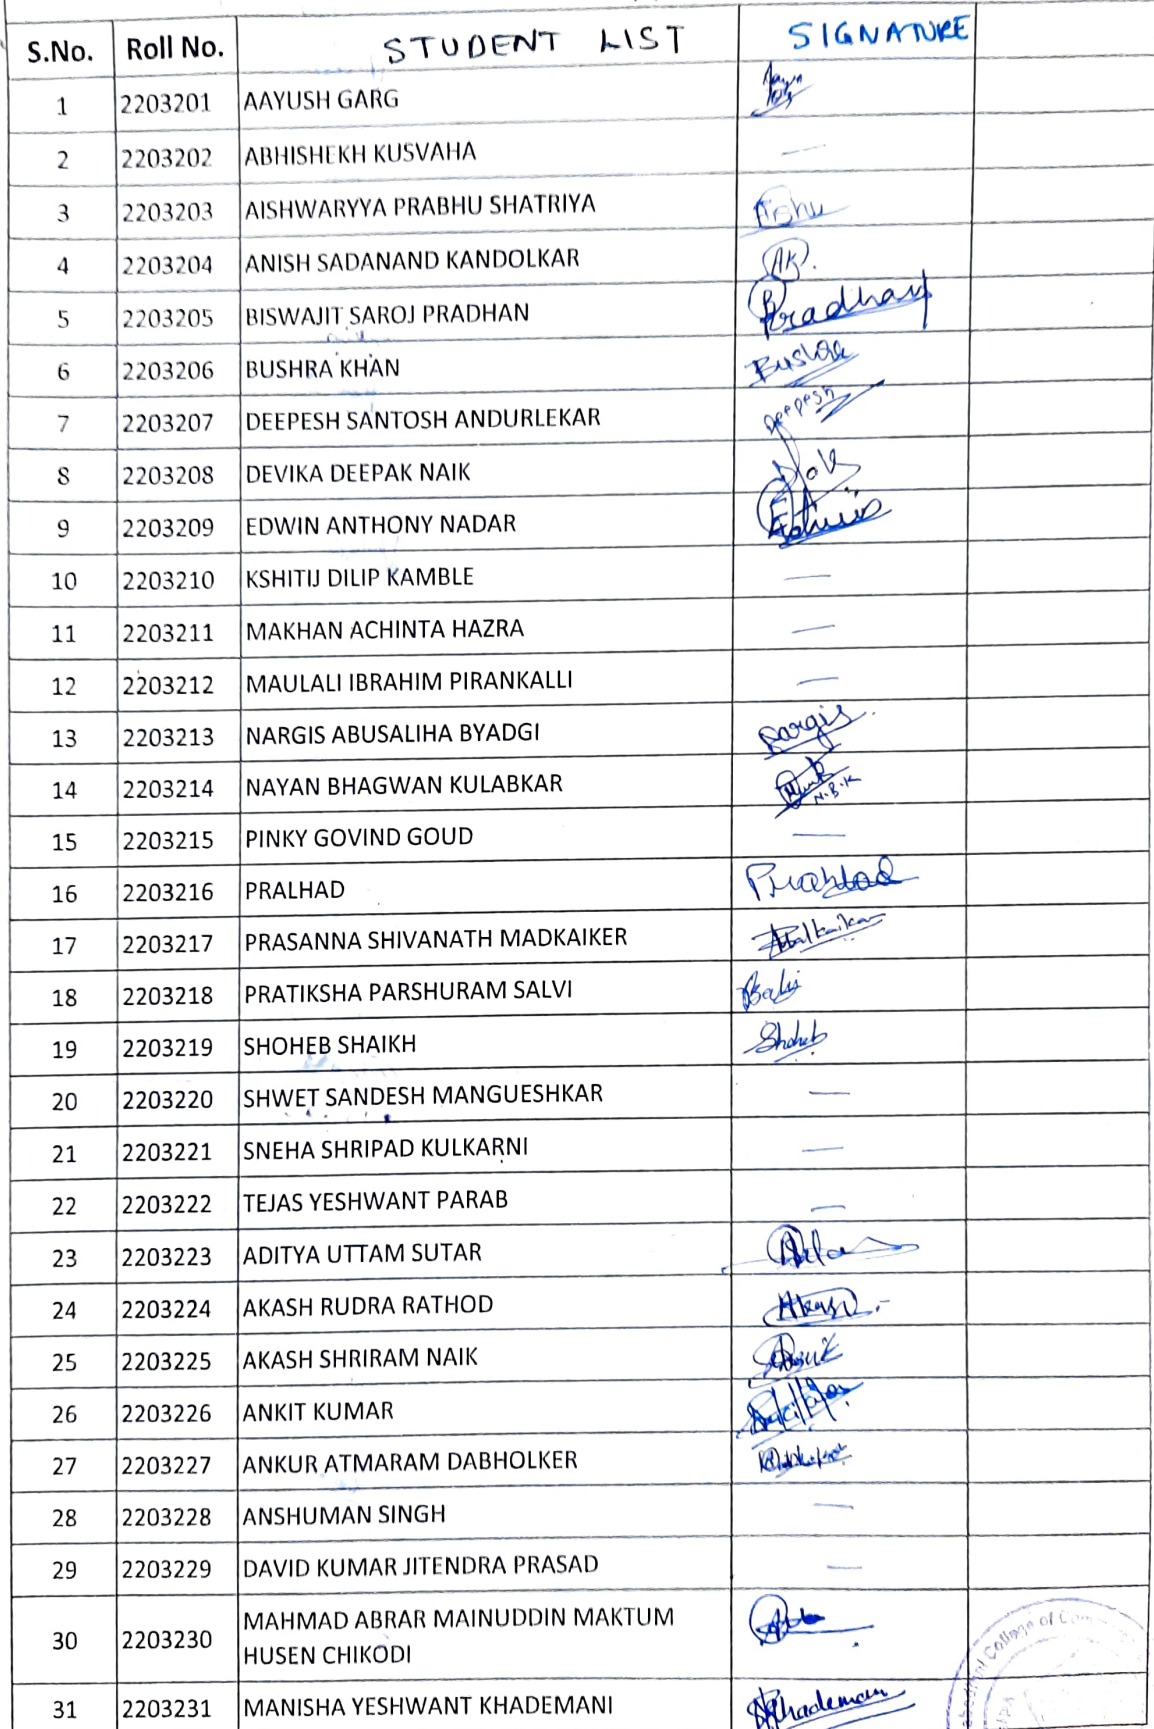 S.No. Roll No. STUDENT LIST SIGNATURE
1 2203201 AAYUSH GARG
2 2203202 ABHISHEKH KUSVAHA —
3 2203203 AISHWARYYA PRABHU SHATRIYA
4 2203204 ANISH SADANAND KANDOLKAR AK.
5 2203205 BISWAJIT SAROJ PRADHAN Pradhan
6 2203206 BUSHRA KHAN Bushra
7 2203207 DEEPESH SANTOSH ANDURLEKAR Deepesh
8 2203208 DEVIKA DEEPAK NAIK
9 2203209 EDWIN ANTHONY NADAR Edwin
10 2203210 KSHITIJ DILIP KAMBLE —
11 2203211 MAKHAN ACHINTA HAZRA —
12 2203212 MAULALI IBRAHIM PIRANKALLI —
13 2203213 NARGIS ABUSALIHA BYADGI Nargis
14 2203214 NAYAN BHAGWAN KULABKAR N.B.K
15 2203215 PINKY GOVIND GOUD —
16 2203216 PRALHAD
17 2203217 PRASANNA SHIVANATH MADKAIKER
18 2203218 PRATIKSHA PARSHURAM SALVI
19 2203219 SHOHEB SHAIKH Shoheb
20 2203220 SHWET SANDESH MANGUESHKAR —
21 2203221 SNEHA SHRIPAD KULKARNI —
22 2203222 TEJAS YESHWANT PARAB —
23 2203223 ADITYA UTTAM SUTAR
24 2203224 AKASH RUDRA RATHOD
25 2203225 AKASH SHRIRAM NAIK
26 2203226 ANKIT KUMAR
27 2203227 ANKUR ATMARAM DABHOLKER
28 2203228 ANSHUMAN SINGH —
29 2203229 DAVID KUMAR JITENDRA PRASAD —
30 2203230 MAHMAD ABRAR MAINUDDIN MAKTUM
HUSEN CHIKODI
College of Com
31 2203231 MANISHA YESHWANT KHADEMANI